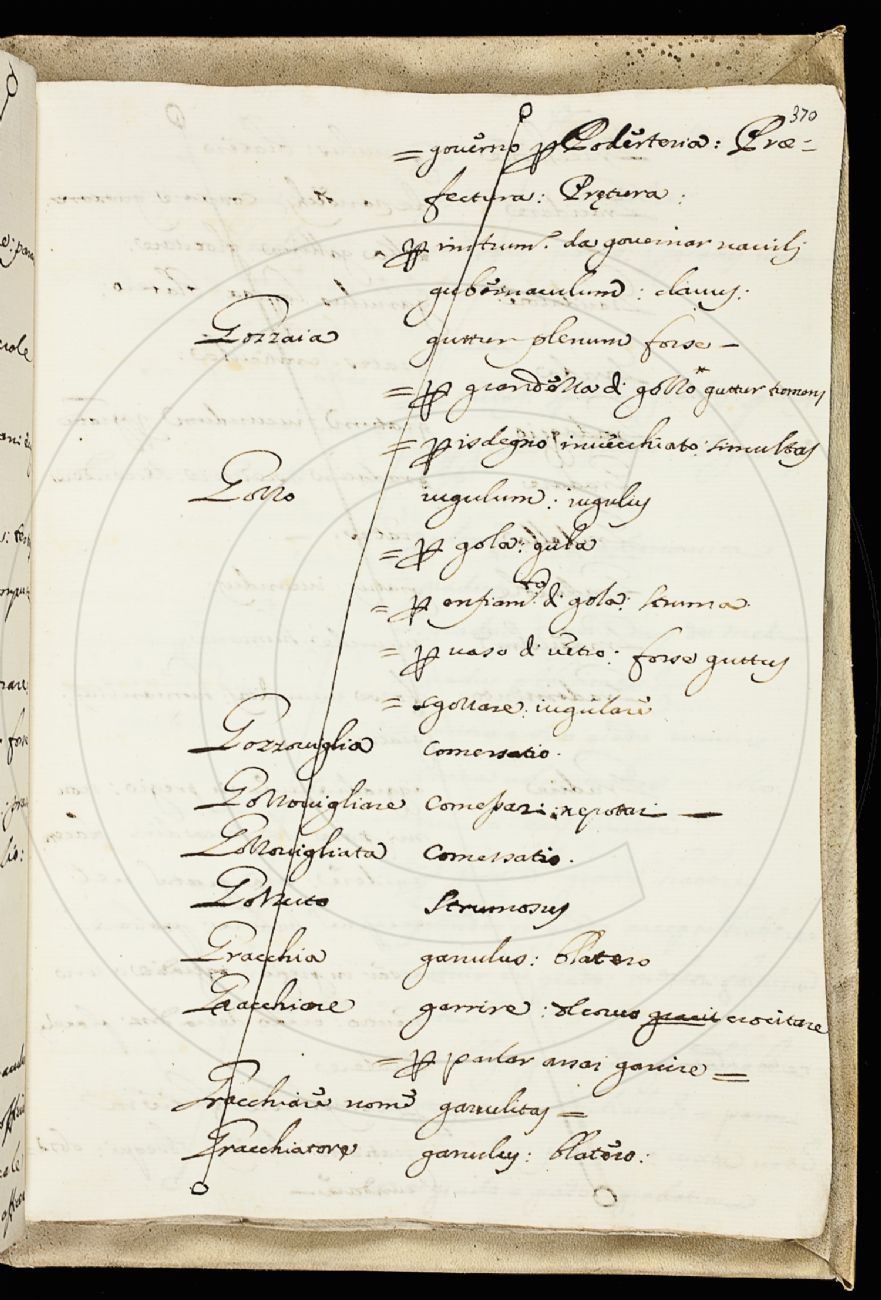 370
= governo ꝑ Podesteria: Præ=
fectura: Prętura:
ꝑ instrum.to da governar navilij
gubernaculum: clavus:
Gozzaia guttur plenum forse –
= ꝑ grandezza di gozzo guttur tumens
= ꝑ isdegno invecchiato: simultas
Gozzo iugulum: iugulus
= ꝑ gola: gula
= ꝑ enfiam.to di gola: struma
= ꝑ vaso di vetro: forse guttus
= sgozzare: iugulare
Gozzoviglia comessatio.
Gozzovigliare comessari: nepotari —
Gozzovigliata Comessatio.
Gozzuto Strumosus
Gracchia garrulus: blatero
Gracchiare garrire: del corvo crocitare
= ꝑ parlar assai garrire =
Gracchiare nome garrulitas =
Gracchiatore garrulus: blatero: